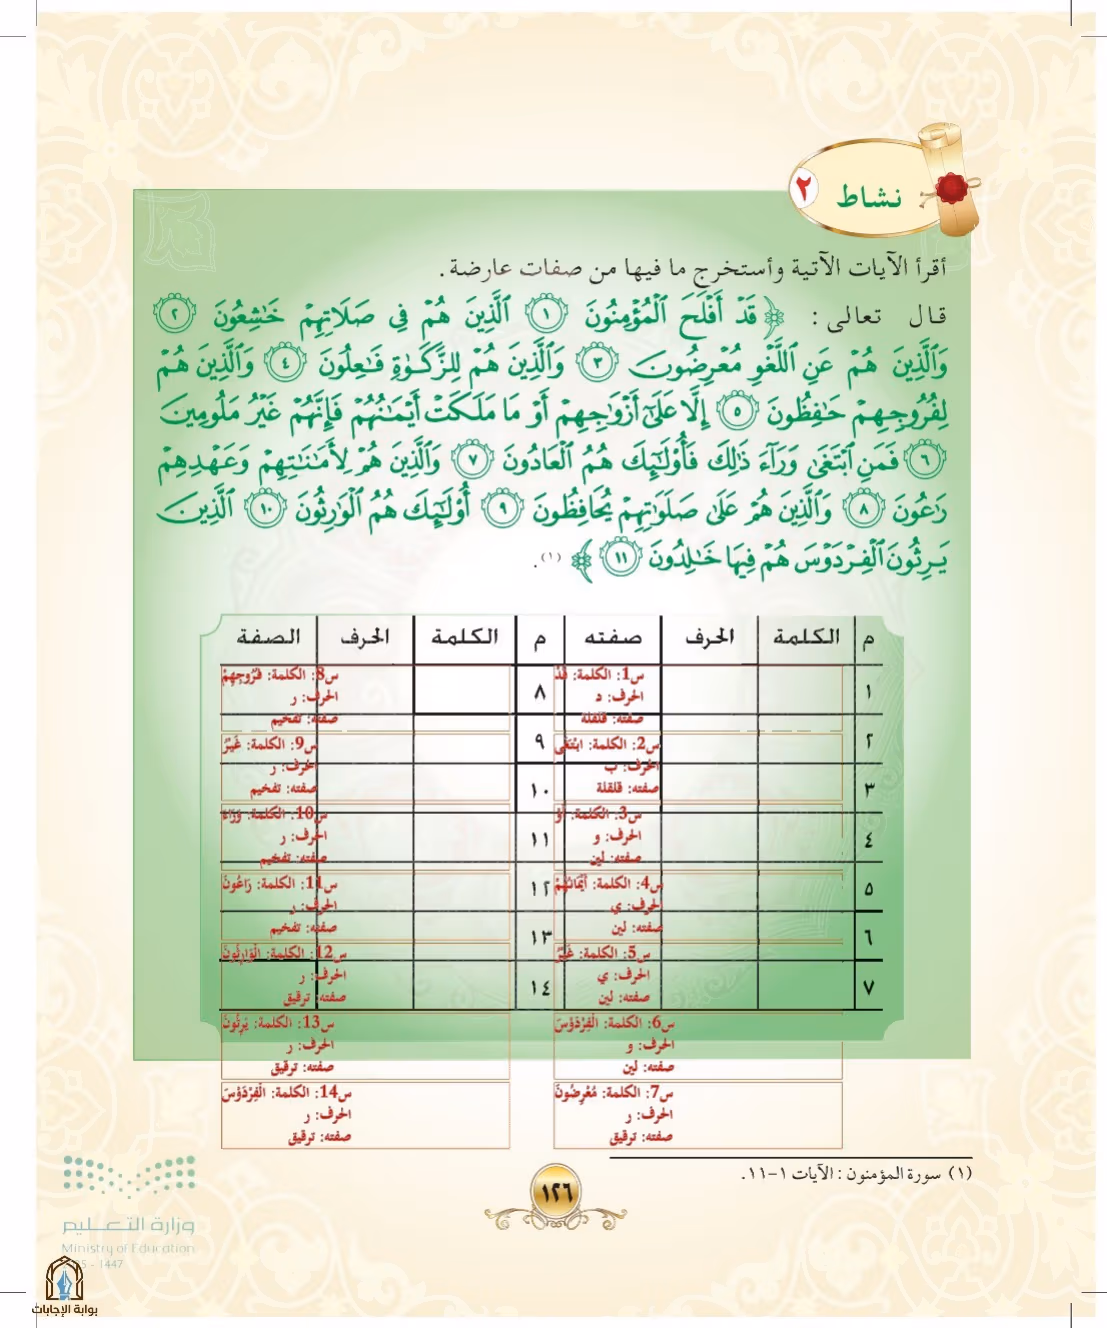 نشاط ٢
أقرأ الآيات الآتية وأستخرج ما فيها من صفات عارضة.
قال تعالى: ﴿ قَدْ أَفْلَحَ الْمُؤْمِنُونَ ١ الَّذِينَ هُمْ فِي صَلَاتِهِمْ خَٰشِعُونَ ٢
وَالَّذِينَ هُمْ عَنِ اللَّغْوِ مُعْرِضُونَ ٣ وَالَّذِينَ هُمْ لِلزَّكَوٰةِ فَٰعِلُونَ ٤ وَالَّذِينَ هُمْ
لِفُرُوجِهِمْ حَٰفِظُونَ ٥ إِلَّا عَلَىٰ أَزْوَٰجِهِمْ أَوْ مَا مَلَكَتْ أَيْمَٰنُهُمْ فَإِنَّهُمْ غَيْرُ مَلُومِينَ
٦ فَمَنِ ابْتَغَىٰ وَرَآءَ ذَٰلِكَ فَأُو۟لَٰٓئِكَ هُمُ الْعَادُونَ ٧ وَالَّذِينَ هُمْ لِأَمَٰنَٰتِهِمْ وَعَهْدِهِمْ
رَٰعُونَ ٨ وَالَّذِينَ هُمْ عَلَىٰ صَلَوَٰتِهِمْ يُحَافِظُونَ ٩ أُو۟لَٰٓئِكَ هُمُ الْوَٰرِثُونَ ١٠ الَّذِينَ
يَرِثُونَ الْفِرْدَوْسَ هُمْ فِيهَا خَٰلِدُونَ ١١ ﴾ (١).
م الكلمة الحرف صفته م الكلمة الحرف الصفة
١ ٨
٢ ٩
٣ ١٠
٤ ١١
٥ ١٢
٦ ١٣
٧ ١٤
س1: الكلمة: قَدْ
الحرف: د
صفته: قلقلة
س2: الكلمة: ابْتَغَى
الحرف: ب
صفته: قلقلة
س3: الكلمة: أَوْ
الحرف: و
صفته: لين
س4: الكلمة: أَيْمَانُهُمْ
الحرف: ي
صفته: لين
س5: الكلمة: غَيْرُ
الحرف: ي
صفته: لين
س6: الكلمة: الْفِرْدَوْسَ
الحرف: و
صفته: لين
س7: الكلمة: مُعْرِضُونَ
الحرف: ر
صفته: ترقيق
س8: الكلمة: فُرُوجِهِمْ
الحرف: ر
صفته: تفخيم
س9: الكلمة: غَيْرُ
الحرف: ر
صفته: تفخيم
س10: الكلمة: وَرَاءَ
الحرف: ر
صفته: تفخيم
س11: الكلمة: رَاعُونَ
الحرف: ر
صفته: تفخيم
س12: الكلمة: الْوَارِثُونَ
الحرف: ر
صفته: ترقيق
س13: الكلمة: يَرِثُونَ
الحرف: ر
صفته: ترقيق
س14: الكلمة: الْفِرْدَوْسَ
الحرف: ر
صفته: ترقيق
(١) سورة المؤمنون: الآيات ١-١١.
١٢٦
وزارة التعليم
Ministry of Education
5 - 1447
بوابة الإجابات